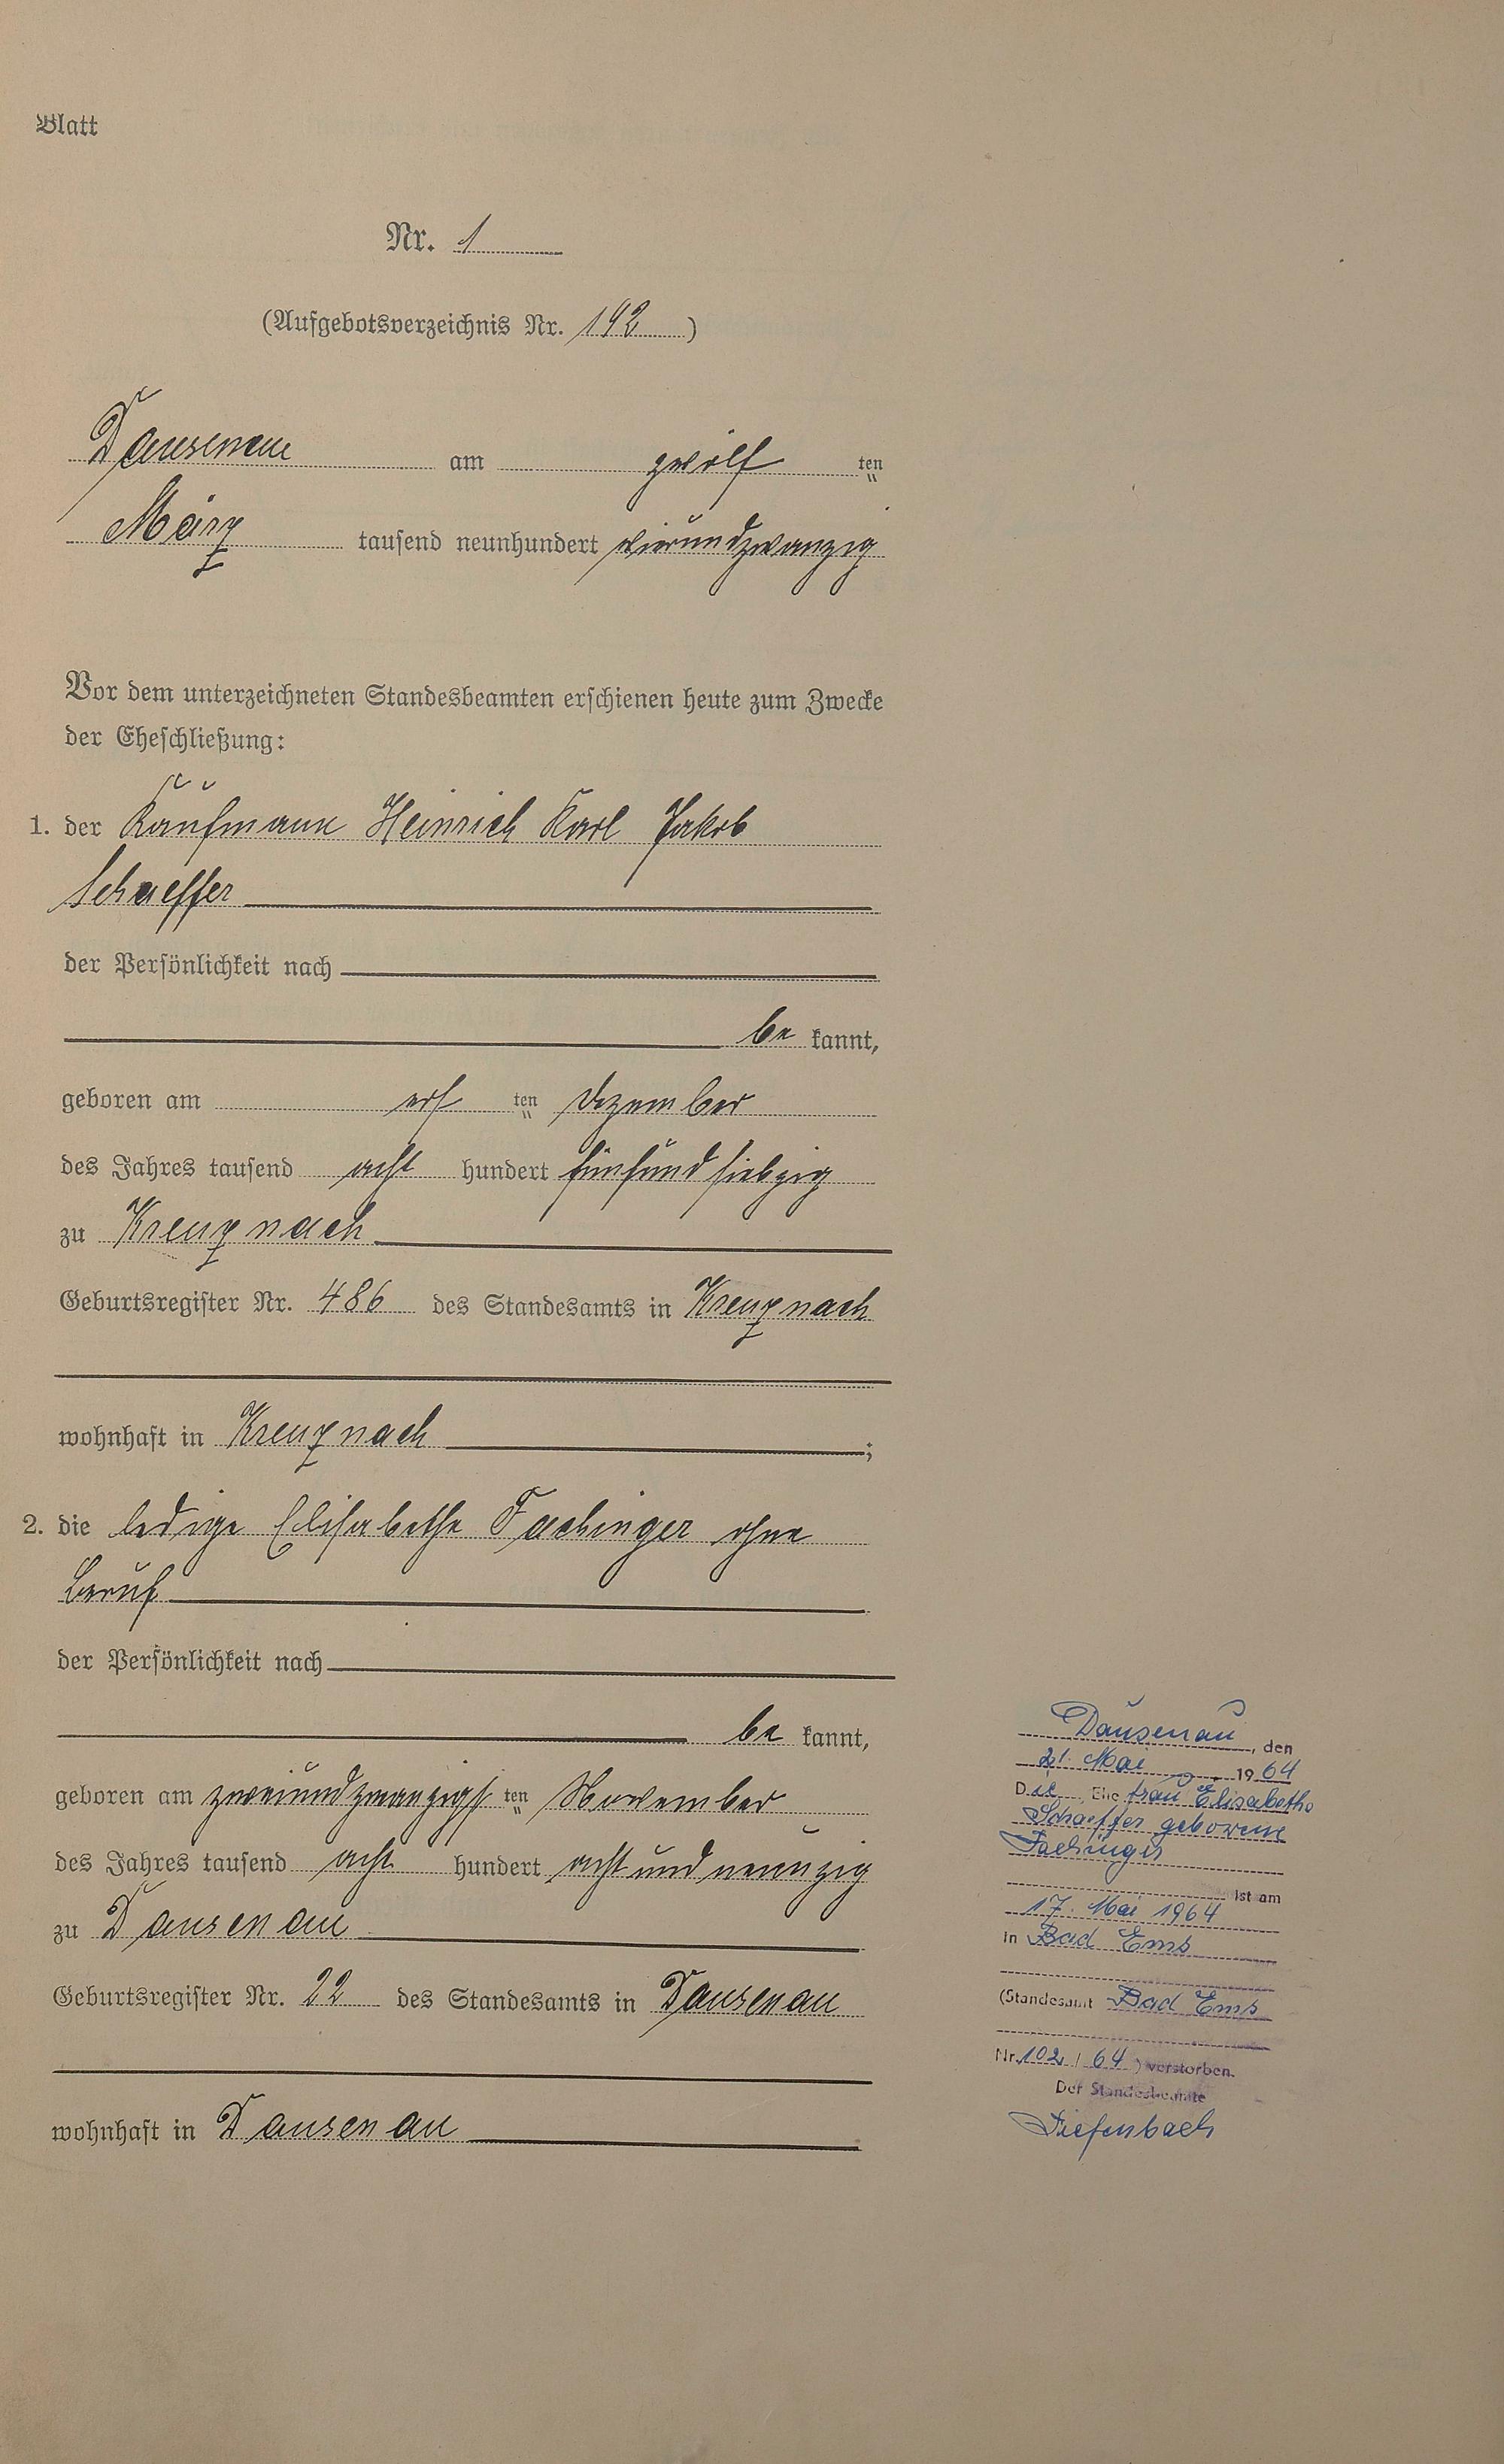 Blatt
Nr. 1
(Aufgebotsverzeichnis Nr. 192)
Dausenau am zwölf ten
März tausend neunhundert vierundzwanzig
Vor dem unterzeichneten Standesbeamten erschienen heute zum Zwecke
der Eheschließung:
1. der Kaufmann Heinrich Karl Jakob
Schaeffer
der Persönlichkeit nach
be kannt,
geboren am ten Dezember
des Jahres tausend acht hundert fünfundsiebzig
zu Kreuznach
Geburtsregister Nr. 486 des Standesamts in Kreuznach
wohnhaft in Kreuznach ;
2. die ledige Elisabethe Fachinger ohne
Beruf
der Persönlichkeit nach
be kannt,
geboren am zweiundzwanzigs ten November
des Jahres tausend acht hundert acht und neunzig
zu Dausenau
Geburtsregister Nr. 22 des Standesamts in Dausenau
wohnhaft in Dausenau
Dausenau, den
21. Mai 1964
Die Ehefrau Elisabetha
Schaeffer geborene
Fachinger
ist am
17. Mai 1964
in Bad Ems
(Standesamt Bad Ems
Nr. 102 / 64 ) verstorben.
Der Standesbeamte
Tiefenbach